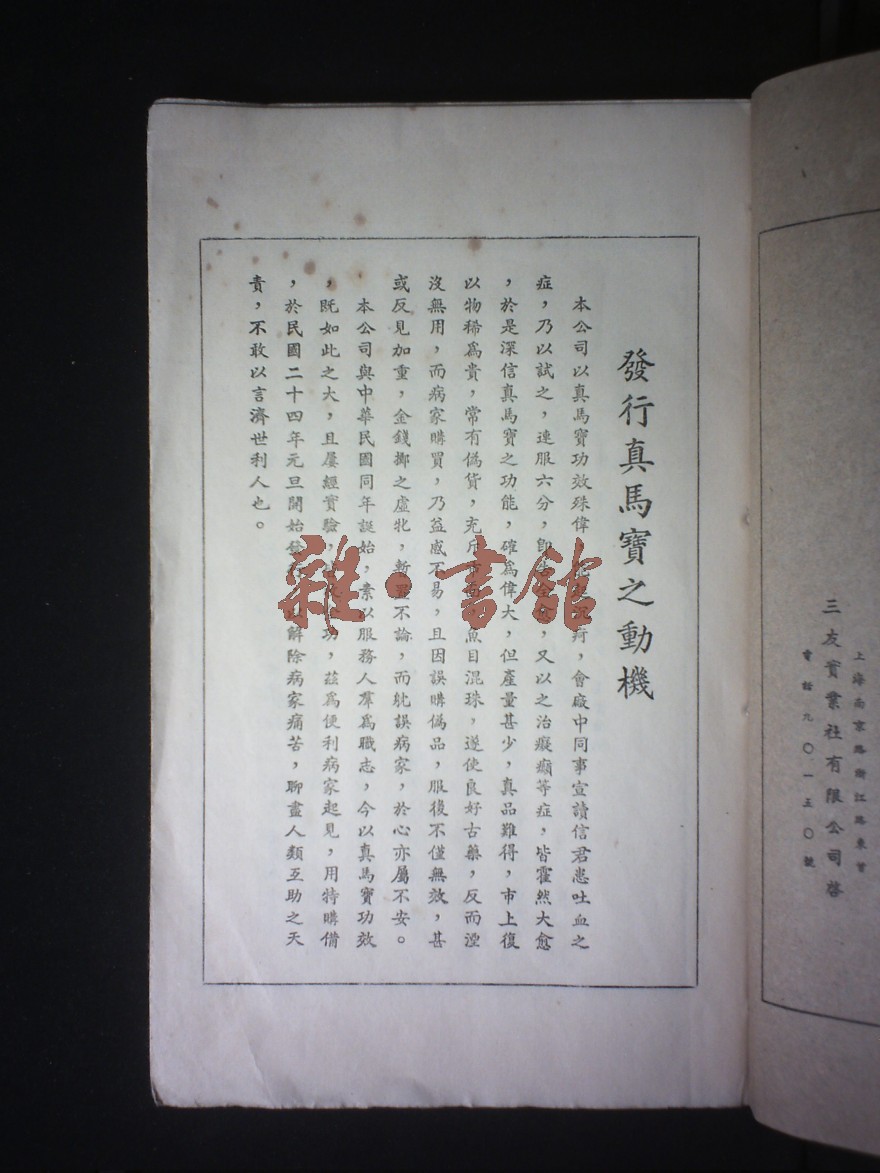 上海南京路浙江路東首
三友實業社有限公司啓
電話九〇一五〇號
發行真馬寶之動機
本公司以真馬寶功效殊偉，疴，會廠中同事宣讀信君患吐血之
症，乃以試之，連服六分，即，又以之治癡癲等症，皆霍然大愈
，於是深信真馬寶之功能，確爲偉大，但產量甚少，真品難得，市上復
以物稀爲貴，常有僞貨，充斥市面，魚目混珠，遂使良好古藥，反而湮
沒無用，而病家購買，乃益感不易，且因誤購僞品，服後不僅無效，甚
或反見加重，金錢擲之虛牝，暫置不論，而躭誤病家，於心亦屬不安。
本公司與中華民國同年誕始，素以服務人羣爲職志，今以真馬寶功效
，既如此之大，且屢經實驗，功，茲爲便利病家起見，用特購備
，於民國二十四年元旦開始發行，以解除病家痛苦，聊盡人類互助之天
責，不敢以言濟世利人也。
雜·書館